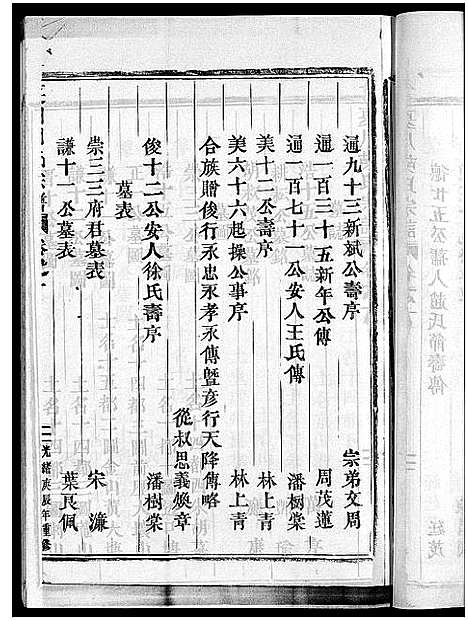 遍九十三新斌公壽序 宗弟文周
遍一百三十五新年公傳 周茂蓮
遍一百七十一公安人王氏傳 潘樹棠
美十二公壽序 林上青
美六十六起操公事序 林上青
合族贈俊行永忠永孝永傳暨彦行天降傳略
從叔思義煥章
俊十二公安人徐氏壽序 潘樹棠
墓表
崇三三府君墓表 宋濂
謙十一公墓表 葉良佩
光緒庚辰年重修
遍廿五公蒲人趙氏節壽傳